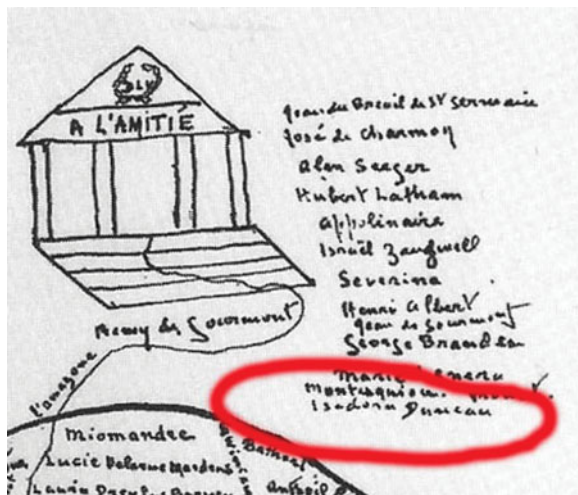 A L'AMITIÉ
Jean du Breuil de St Germain
José de Charmoy
Alen Seeger
Hubert Latham
Appolinaire
Israël Zangwill
Severina
Henri Albert
Jean de Gourmont
George Brandes
Marie Leneru
Montesquiou
Isadora Duncan
Remy de Gourmont
l'amazone
Miomandre
Lucie Delarue Mardrus